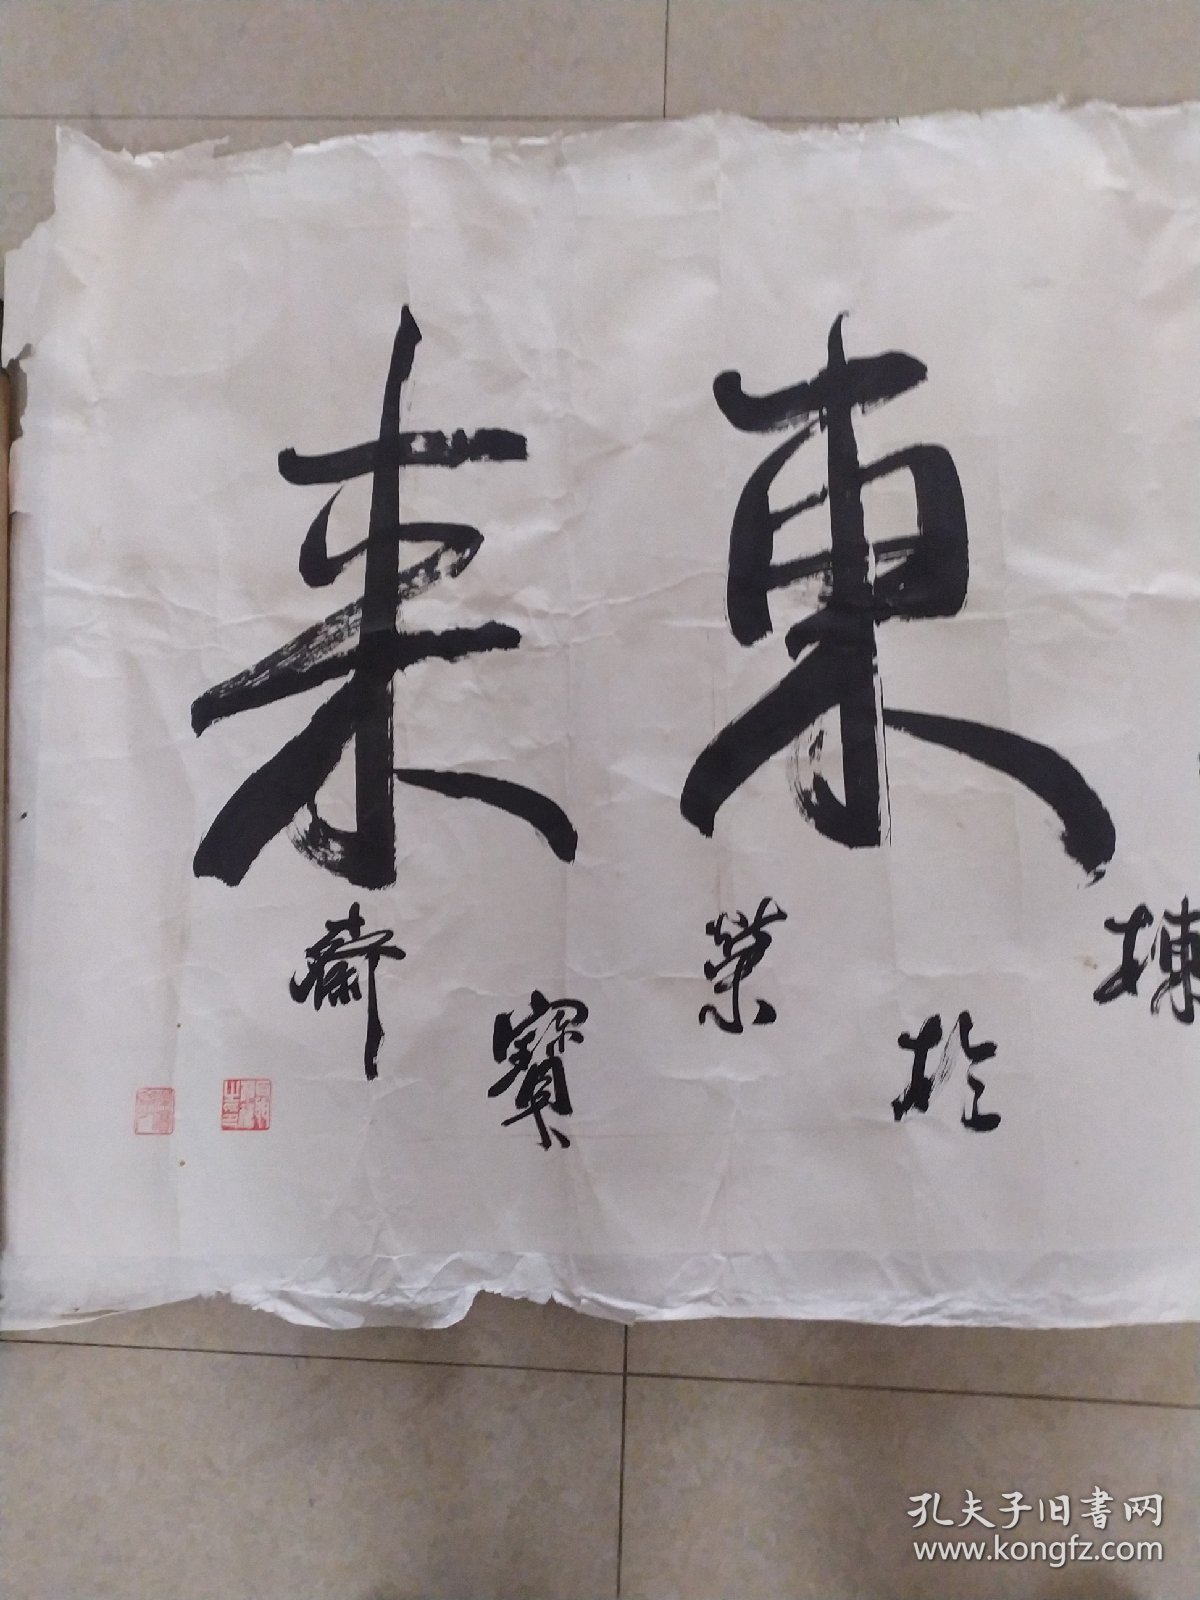 東來
棟於榮寶齋
孔夫子旧書网
www.kongfz.com